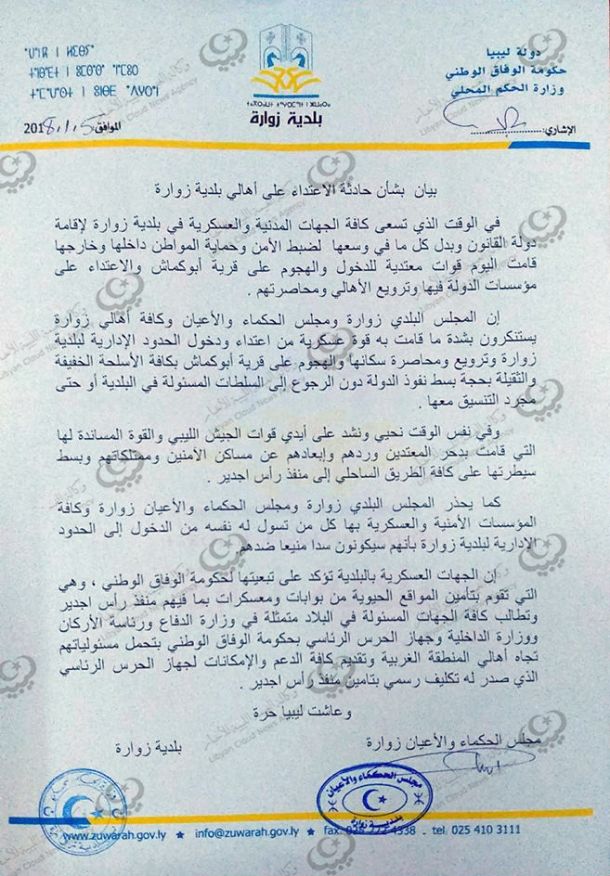 دولة ليبيا
حكومة الوفاق الوطني
وزارة الحكم المحلي
الإشاري:
بلدية زوارة
الموافق: 2018/1/5
بيان بشأن حادثة الاعتداء على أهالي بلدية زوارة
في الوقت الذي تسعى كافة الجهات المدنية والعسكرية في بلدية زوارة لإقامة
دولة القانون وبدل كل ما في وسعها لضبط الأمن وحماية المواطن داخلها وخارجها
قامت اليوم قوات معتدية للدخول والهجوم على قرية أبوكماش والاعتداء على
مؤسسات الدولة فيها وترويع الأهالي ومحاصرتهم .
إن المجلس البلدي زوارة ومجلس الحكماء والأعيان وكافة أهالي زوارة
يستنكرون بشدة ما قامت به قوة عسكرية من اعتداء ودخول الحدود الإدارية لبلدية
زوارة وترويع ومحاصرة سكانها والهجوم على قرية أبوكماش بكافة الأسلحة الخفيفة
والثقيلة بحجة بسط نفوذ الدولة دون الرجوع إلى السلطات المسئولة في البلدية أو حتى
مجرد التنسيق معها .
وفي نفس الوقت نحيي ونشد على أيدي قوات الجيش الليبي والقوة المساندة لها
التي قامت بدحر المعتدين وردهم وإبعادهم عن مساكن الآمنين وممتلكاتهم وبسط
سيطرتها على كافة الطريق الساحلي إلى منفذ رأس اجدير .
كما يحذر المجلس البلدي زوارة ومجلس الحكماء والأعيان زوارة وكافة
المؤسسات الأمنية والعسكرية بها كل من تسول له نفسه من الدخول إلى الحدود
الإدارية لبلدية زوارة بأنهم سيكونون سدا منيعا ضدهم.
إن الجهات العسكرية بالبلدية تؤكد على تبعيتها لحكومة الوفاق الوطني ، وهي
التي تقوم بتأمين المواقع الحيوية من بوابات ومعسكرات بما فيهم منفذ رأس اجدير
وتطالب كافة الجهات المسئولة في البلاد متمثلة في وزارة الدفاع ورئاسة الأركان
ووزارة الداخلية وجهاز الحرس الرئاسي بحكومة الوفاق الوطني بتحمل مسئولياتهم
تجاه أهالي المنطقة الغربية وتقديم كافة الدعم والإمكانات لجهاز الحرس الرئاسي
الذي صدر له تكليف رسمي بتامين منفذ رأس اجدير .
وعاشت ليبيا حرة
مجلس الحكماء والأعيان زوارة
بلدية زوارة
مجلس الحكماء والأعيان
بلدية زوارة
www.zuwarah.gov.ly ★ info@zuwarah.gov.ly ★ fax. 4338 . tel. 025 410 3111